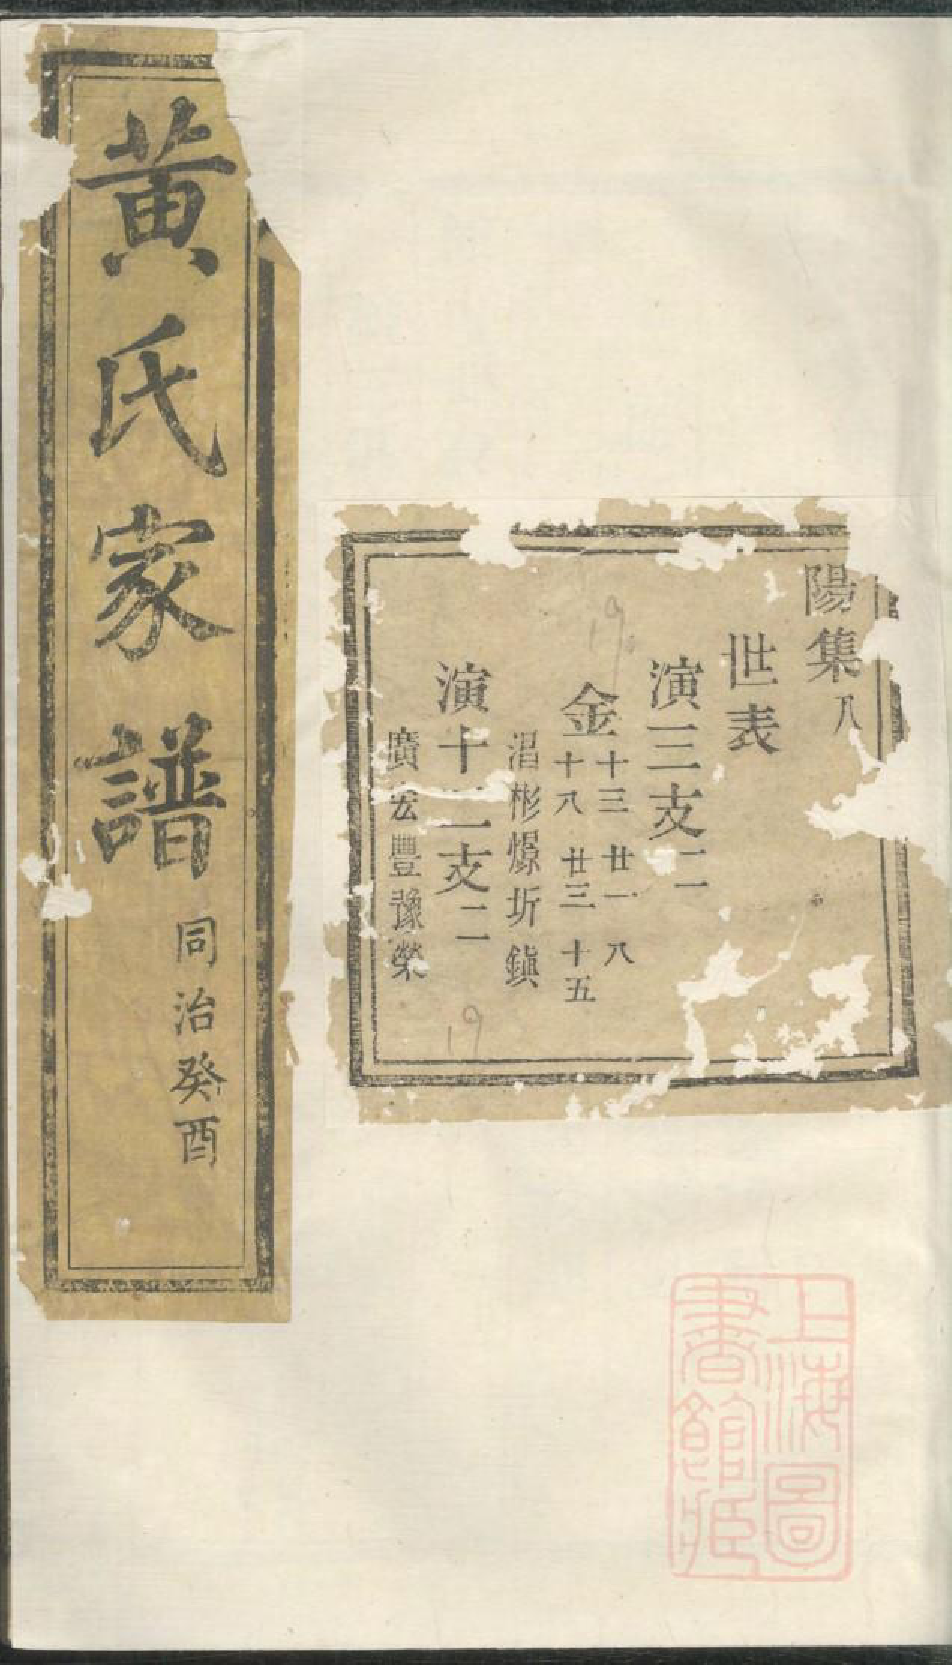 陽集八
世表
演三支二
金
十三 廿一 八
十八 廿三 十五
焻彬燝圻鎮
演十二支二
廣宏豐豫榮
黃氏家譜
同治癸酉
上海圖
書館藏
19
19